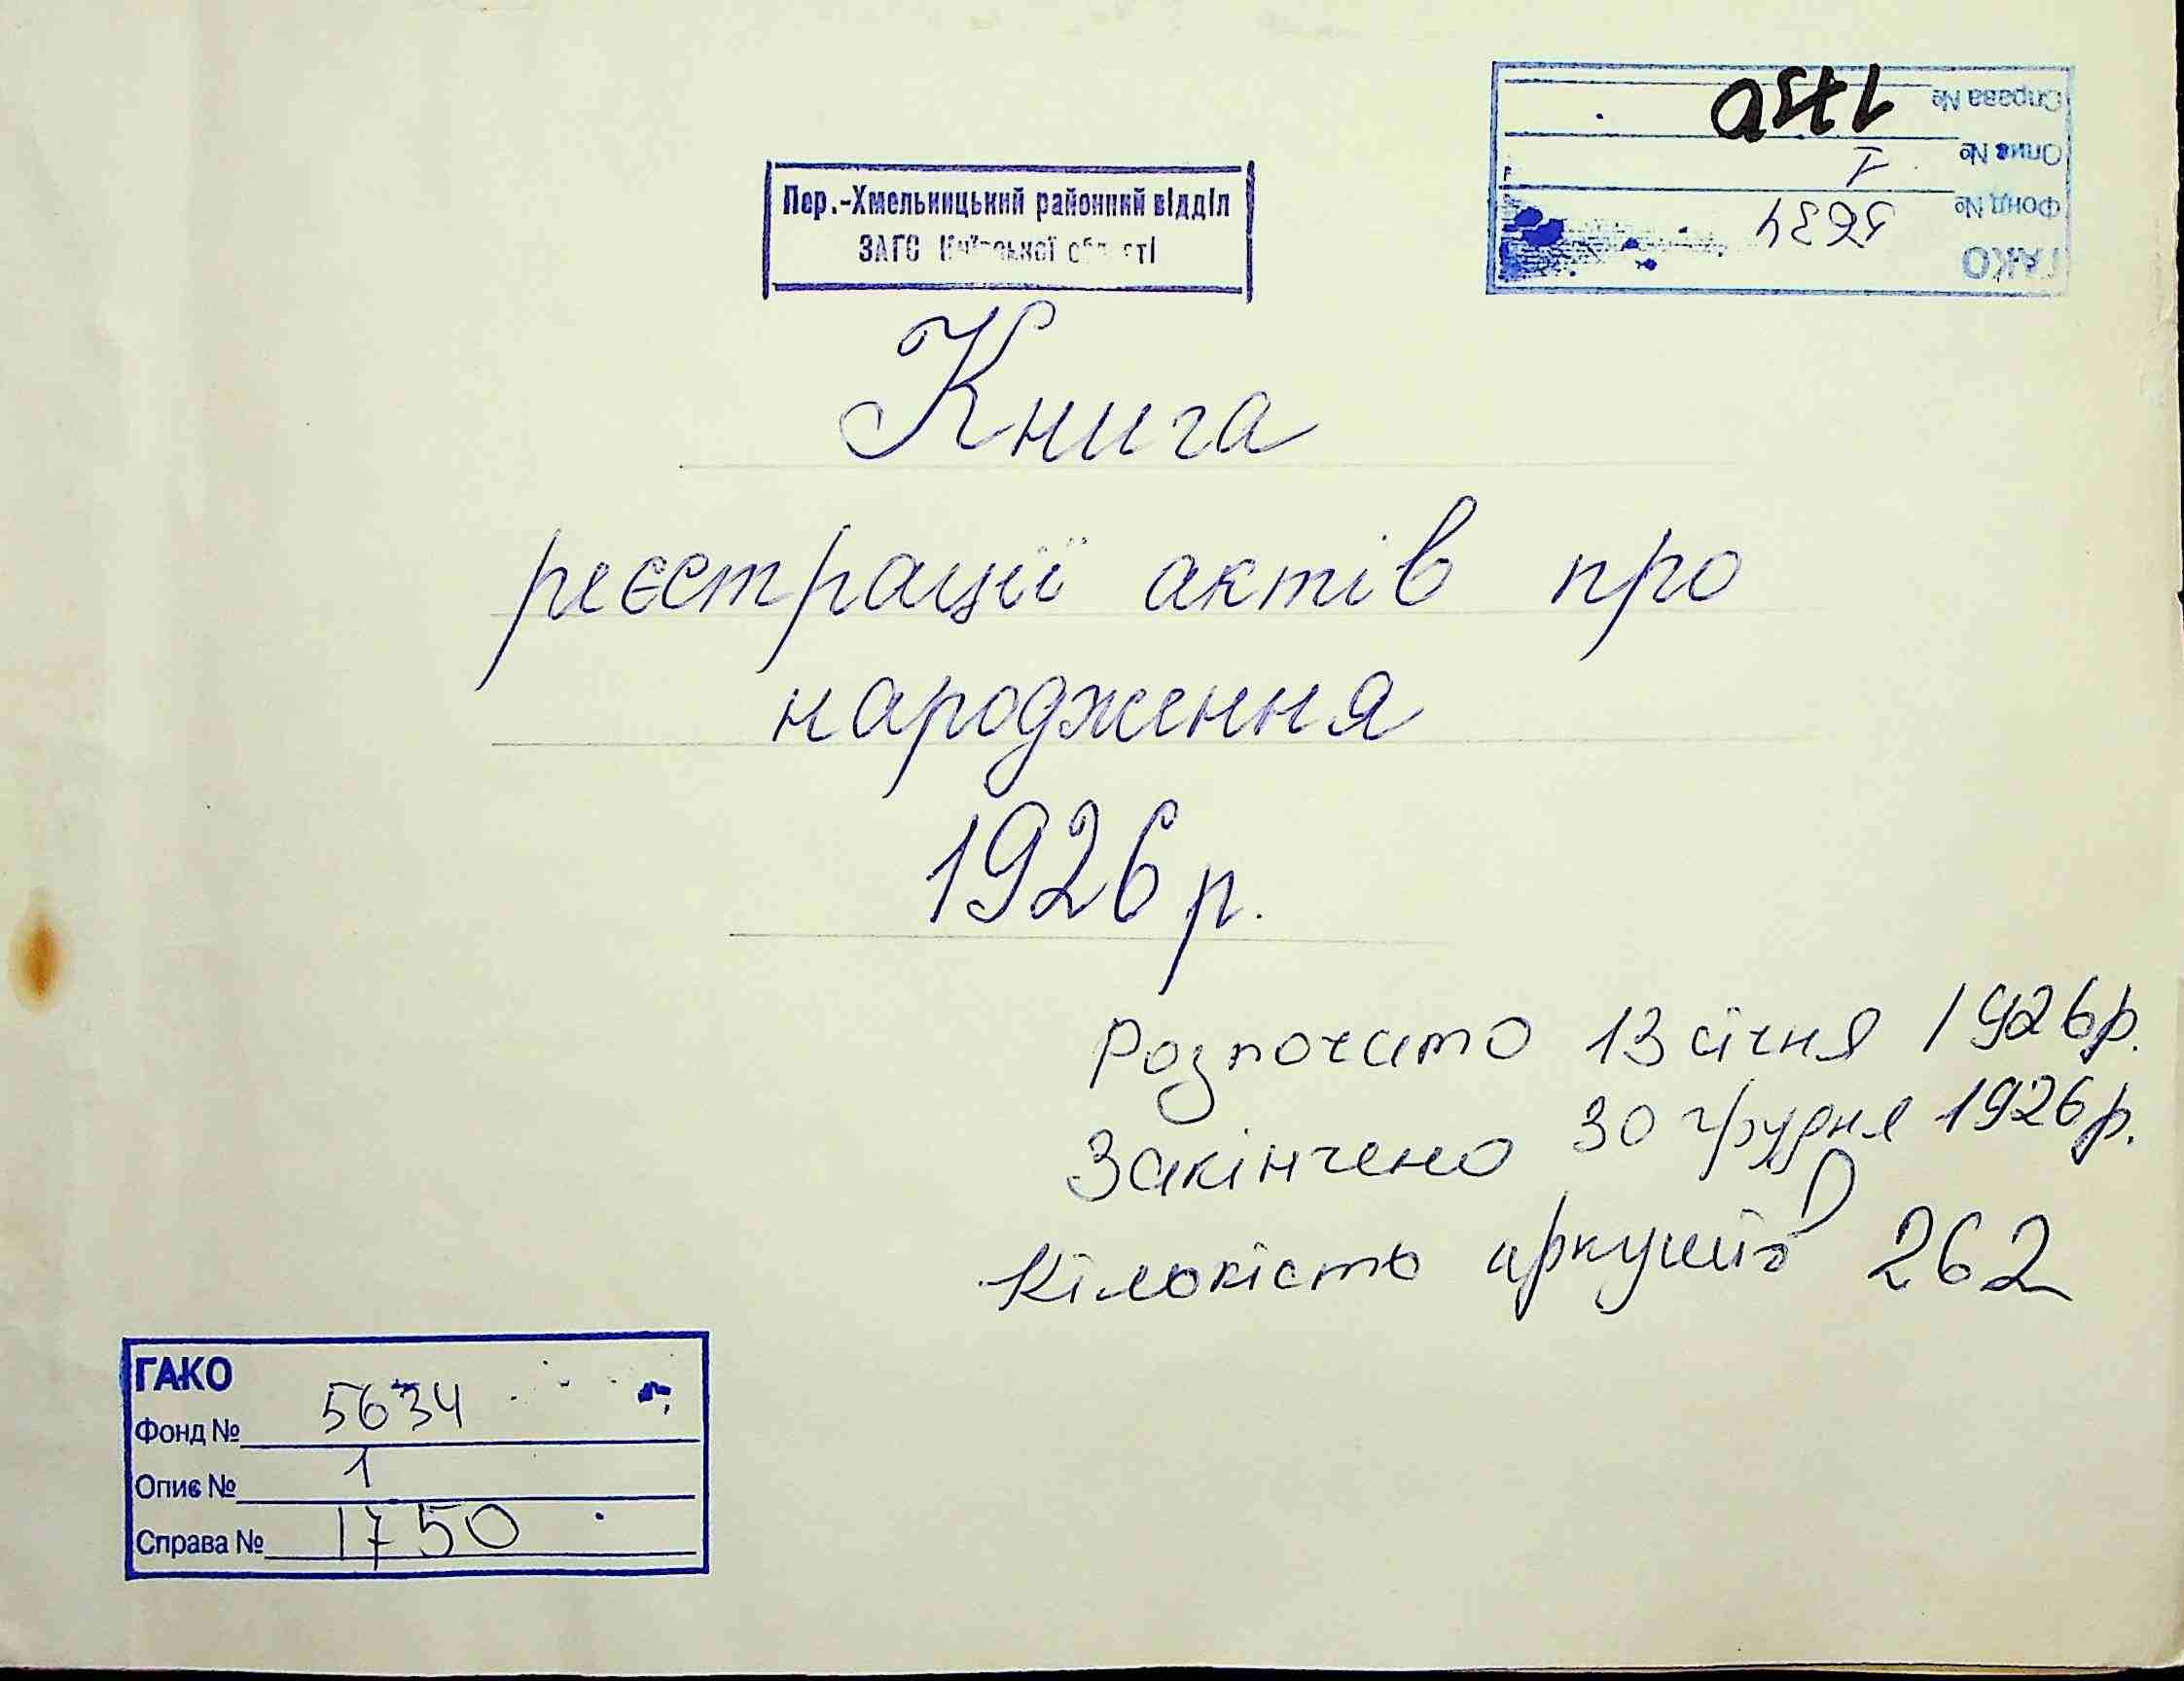 Справа № 1750
Опис № 1
Фонд № 5634
ГАКО
Пер.-Хмельницький районний відділ
ЗАГС Київської області
Книга
реєстрації актів про
народження
1926 р.
Розпочато 13 січня 1926р.
Закінчено 30 грудня 1926р.
Кількість аркушів 262
ГАКО
Фонд № 5634
Опис № 1
Справа № 1750